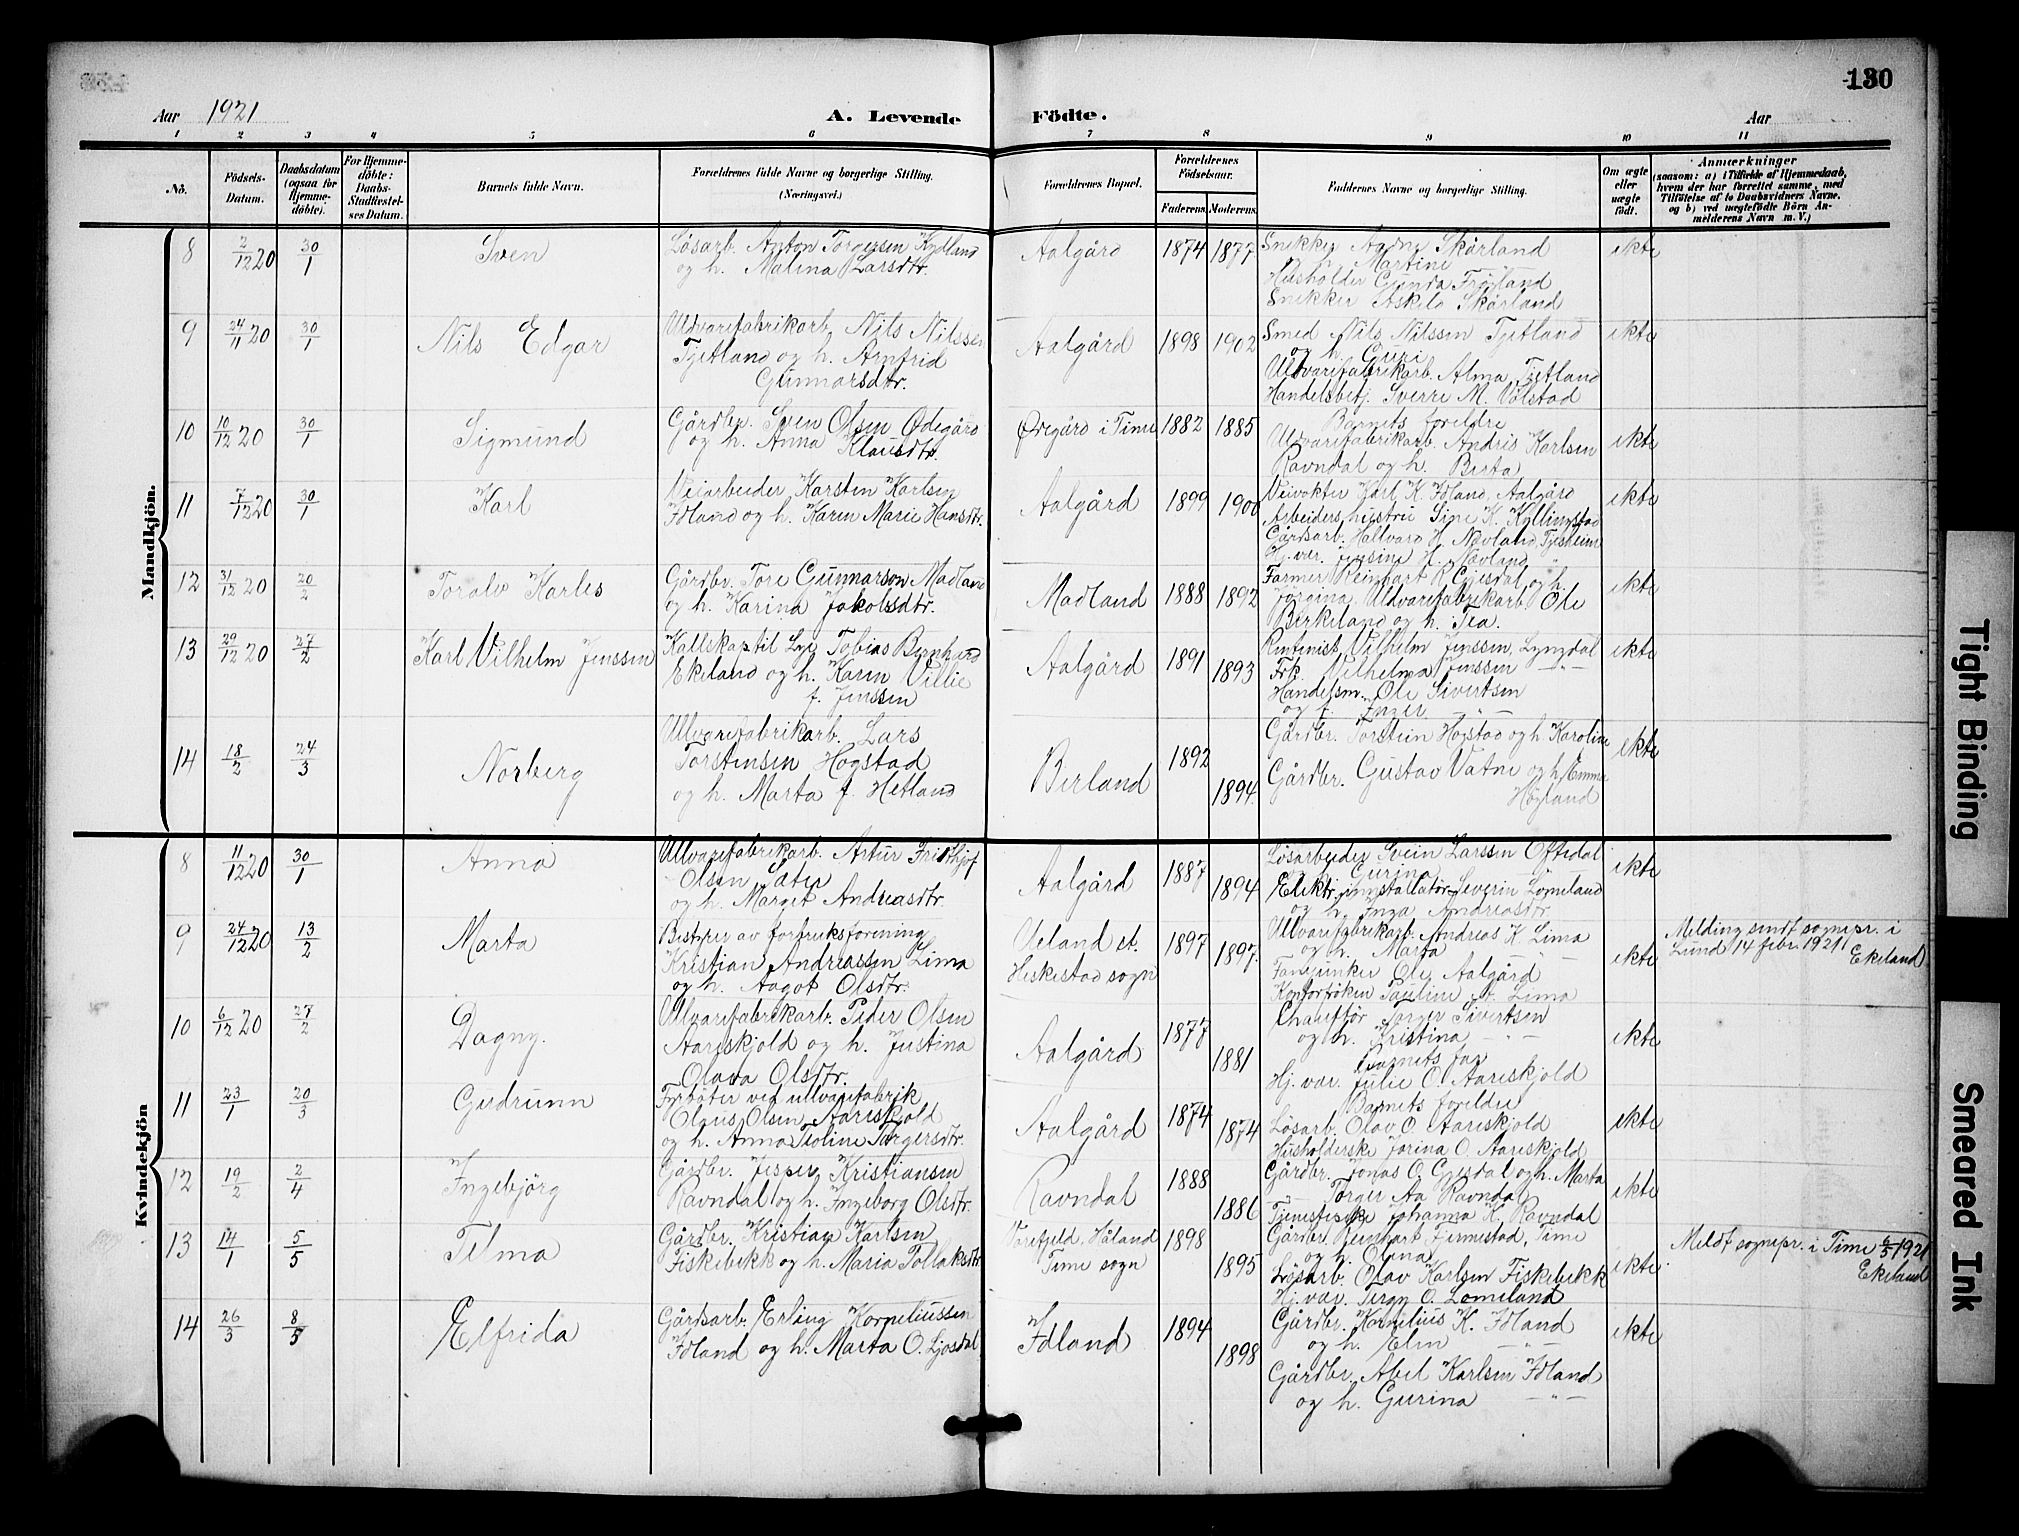 130
Aar 1921
A. Levende Födte.
Aar
1 2 3 4 5 6 7 8 9 10 11
No.
Födsels-Datum.
Daabsdatum (ogsaa for Hjemme-döbte).
For Hjemme-döbte: Daabs-Stadfæstel-ses Datum.
Barnets fulde Navn.
Forældrenes fulde Navne og borgerlige Stilling. (Næringsvei.)
Forældrenes Bopæl.
Forældrenes Födselsaar.
Faderens. Moderens.
Faddernes Navne og borgerlige Stilling.
Om ægte eller uægte födt.
Anmærkninger
(saasom: a) i Tilfælde af Hjemmedaab, hvem der har forrettet samme, med Tilföielse af to Daabsvidners Navne. og b) ved uægtefödte Börn An-melderens Navn m. V.)
Mandkjön.
8 2/12 20 30/1 Sven
Løsarb. Anton Torgersen Kydland
og h. Malina Larsdtr.
Aalgård 1874 1877
Snekker Aadne Skårland
og h. Martine
Husholder Gunda Frøyland
Snekker Askild Skårland
ekte
9 24/11 20 30/1 Nils Edgar
Uldvarefabrikarb. Nils Nilssen
Tjetland og h. Arnfrid
Gunnarsdtr.
Aalgård 1898 1902
Smed Nils Nilssen Tjetland
og h. Guri
Uldvarefabrikarb. Alma Tjetland
Handelsbetj. Sverre M. Vølstad
ekte
10 10/12 20 30/1 Sigmund
Gårdbr. Sven Olsen Ødegård
og h. Anna Klausdtr.
Øregård i Time 1882 1885
Barnets foreldre
Uldvarefabrikarb. Andris Karlsen
Ravndal og h. Berta
ekte
11 7/12 20 30/1 Karl
Veiarbeider Karsten Karlsen
Idland og h. Karen Marie Hansdtr.
Aalgård 1899 1900
Veivokter Karl K. Idland, Aalgård
Arbeiders hustru Sine K. Kyllingstad
Gårdsarb. Hallvard H. Nevland, Tjesheim
Hj. vær. Jensine H. Nevland
ekte
12 31/12 20 20/2 Toralv Karles
Gårdbr. Tore Gunnarson Madland
og h. Karina Jakobsdtr.
Madland 1888 1892
Farmer Reinhart R. Gjesdal og h.
Jorgina, Uldvarefabrikarb. Ole
Birkeland og h. Tea.
ekte
13 29/12 20 27/2 Karl Vilhelm Jenssen
Kallskap til Lye Tobias Bernhard
Ekeland og h. Karen Villie
f. Jenssen
Aalgård 1891 1893
Rentenist Vilhelm Jenssen, Lyngdal
Frk. Vilhelma Jenssen —"—
Handelsm. Ole Sivertsen
og f. Inger —"—
ekte
14 18/2 24/3 Norberg
Ullvarefabrikarb. Lars
Torstensen Høgstad
og h. Marta f. Hetland
Berland 1892 1894
Gårdbr. Torstein Høgstad og h. Karoline
Gårdbr. Gustav Vatne og h. Emma
Høyland
ekte
Kvindekjön
8 11/12 20 30/1 Anna
Ullvarefabrikarb. Artur Fridthjof
Olsen Sæter
og h. Marget Andreasdtr.
Aalgård 1887 1894
Løsarbeider Svein Larssen Oftedal
og h. Gurina
Elektr. installatør Severin Lomeland
og h. Inga Andreasdtr.
ekte
9 24/12 20 13/2 Marta
Bestyrer av forbruksforening
Kristian Andreassen Lima
og h. Aagot Olsdtr.
Ueland st.
Heskestad sogn 1897 1897
Ullvarefabrikarb. Andreas K. Lima
og h. Marta
Fanejunker Ole Aalgård
Kontorfrøken Pauline A. Lima
ekte
Melding sendt sognepr. i
Lund 14 febr. 1921
Ekeland
10 6/12 20 27/2 Dagny.
Ullvarefabrikarb. Peder Olsen
Aareskjold og h. Justina
Olava Olsdtr.
Aalgård 1877 1881
Chauffør Torger Sivertsen
og h. Kristina —"—
Barnets far
Hj. vær. Julie O. Aareskjold
ekte
11 23/1 20/3 Gudrunn
Fyrbøter ved ullvarefabrik
Olaus Olsen Aareskjold
og h. Anna Teoline Torgersdtr.
Aalgård 1874 1874
Barnets foreldre
Løsarb. Olav O. Aareskjold
Husholderske Jorina O. Aareskjold
ekte
12 19/2 2/4 Ingebjörg
Gårdbr. Jesper Kristiansen
Ravndal og h. Ingeborg Olsdtr.
Ravndal 1888 1886
Gårdbr. Jonas O. Gjesdal og h. Marta
—"— Torger Aa Ravndal
Tjenestepike Johanna K. Ravndal
ekte
13 14/1 5/5 Telma
Gårdbr. Kristian Karlsen
Fiskebekk og h. Maria Tollaksdtr.
Håland
Time sogn 1898 1895
Gårdbr. Reinhart Fermestad, Time
og h. Olina
Løsarb. Olav Karlsen Fiskebekk
Hj. vær. Tergn O. Lomeland
ekte
Meldt sognepr. i Time 6/5 1921
Ekeland
14 26/3 8/5 Elfrida
Gårdsarb. Erling Korneliussen
Idland og h. Marta O. Ljosdal
Idland 1894 1898
Gårdbr. Kornelius K. Idland
og h. Elen —"—
Gårdbr. Abel Karlsen Idland
og h. Gurina —"—
ekte
Tight Binding
Smeared Ink